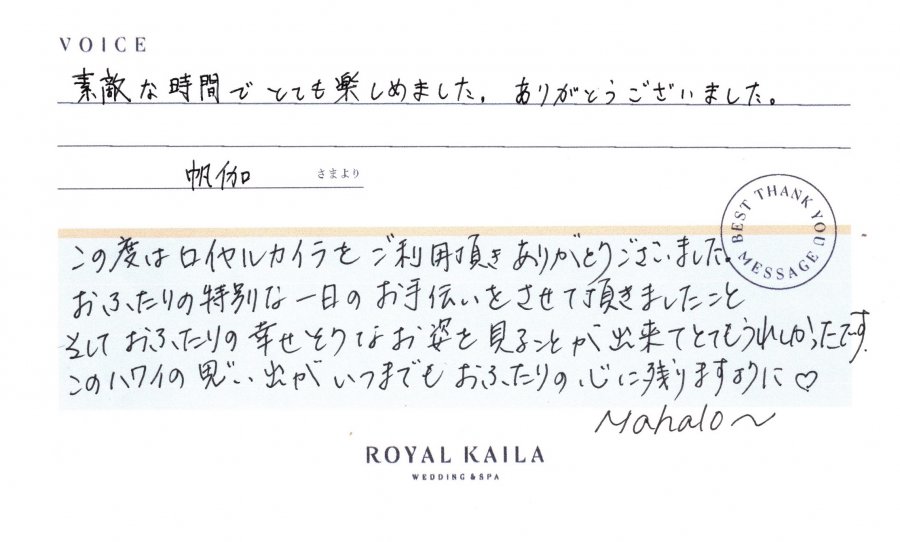 VOICE
素敵な時間でとても楽しめました。ありがとうございました。
帆伽 さまより
BEST THANK YOU MESSAGE
この度はロイヤルカイラをご利用頂きありがとうございました。
おふたりの特別な一日のお手伝いをさせて頂きましたこと
そしておふたりの幸せそうなお姿を見ることが出来てとてもうれしかったです。
このハワイの思い出がいつまでもおふたりの心に残りますように♡
Mahalo〜
ROYAL KAILA
WEDDING & SPA